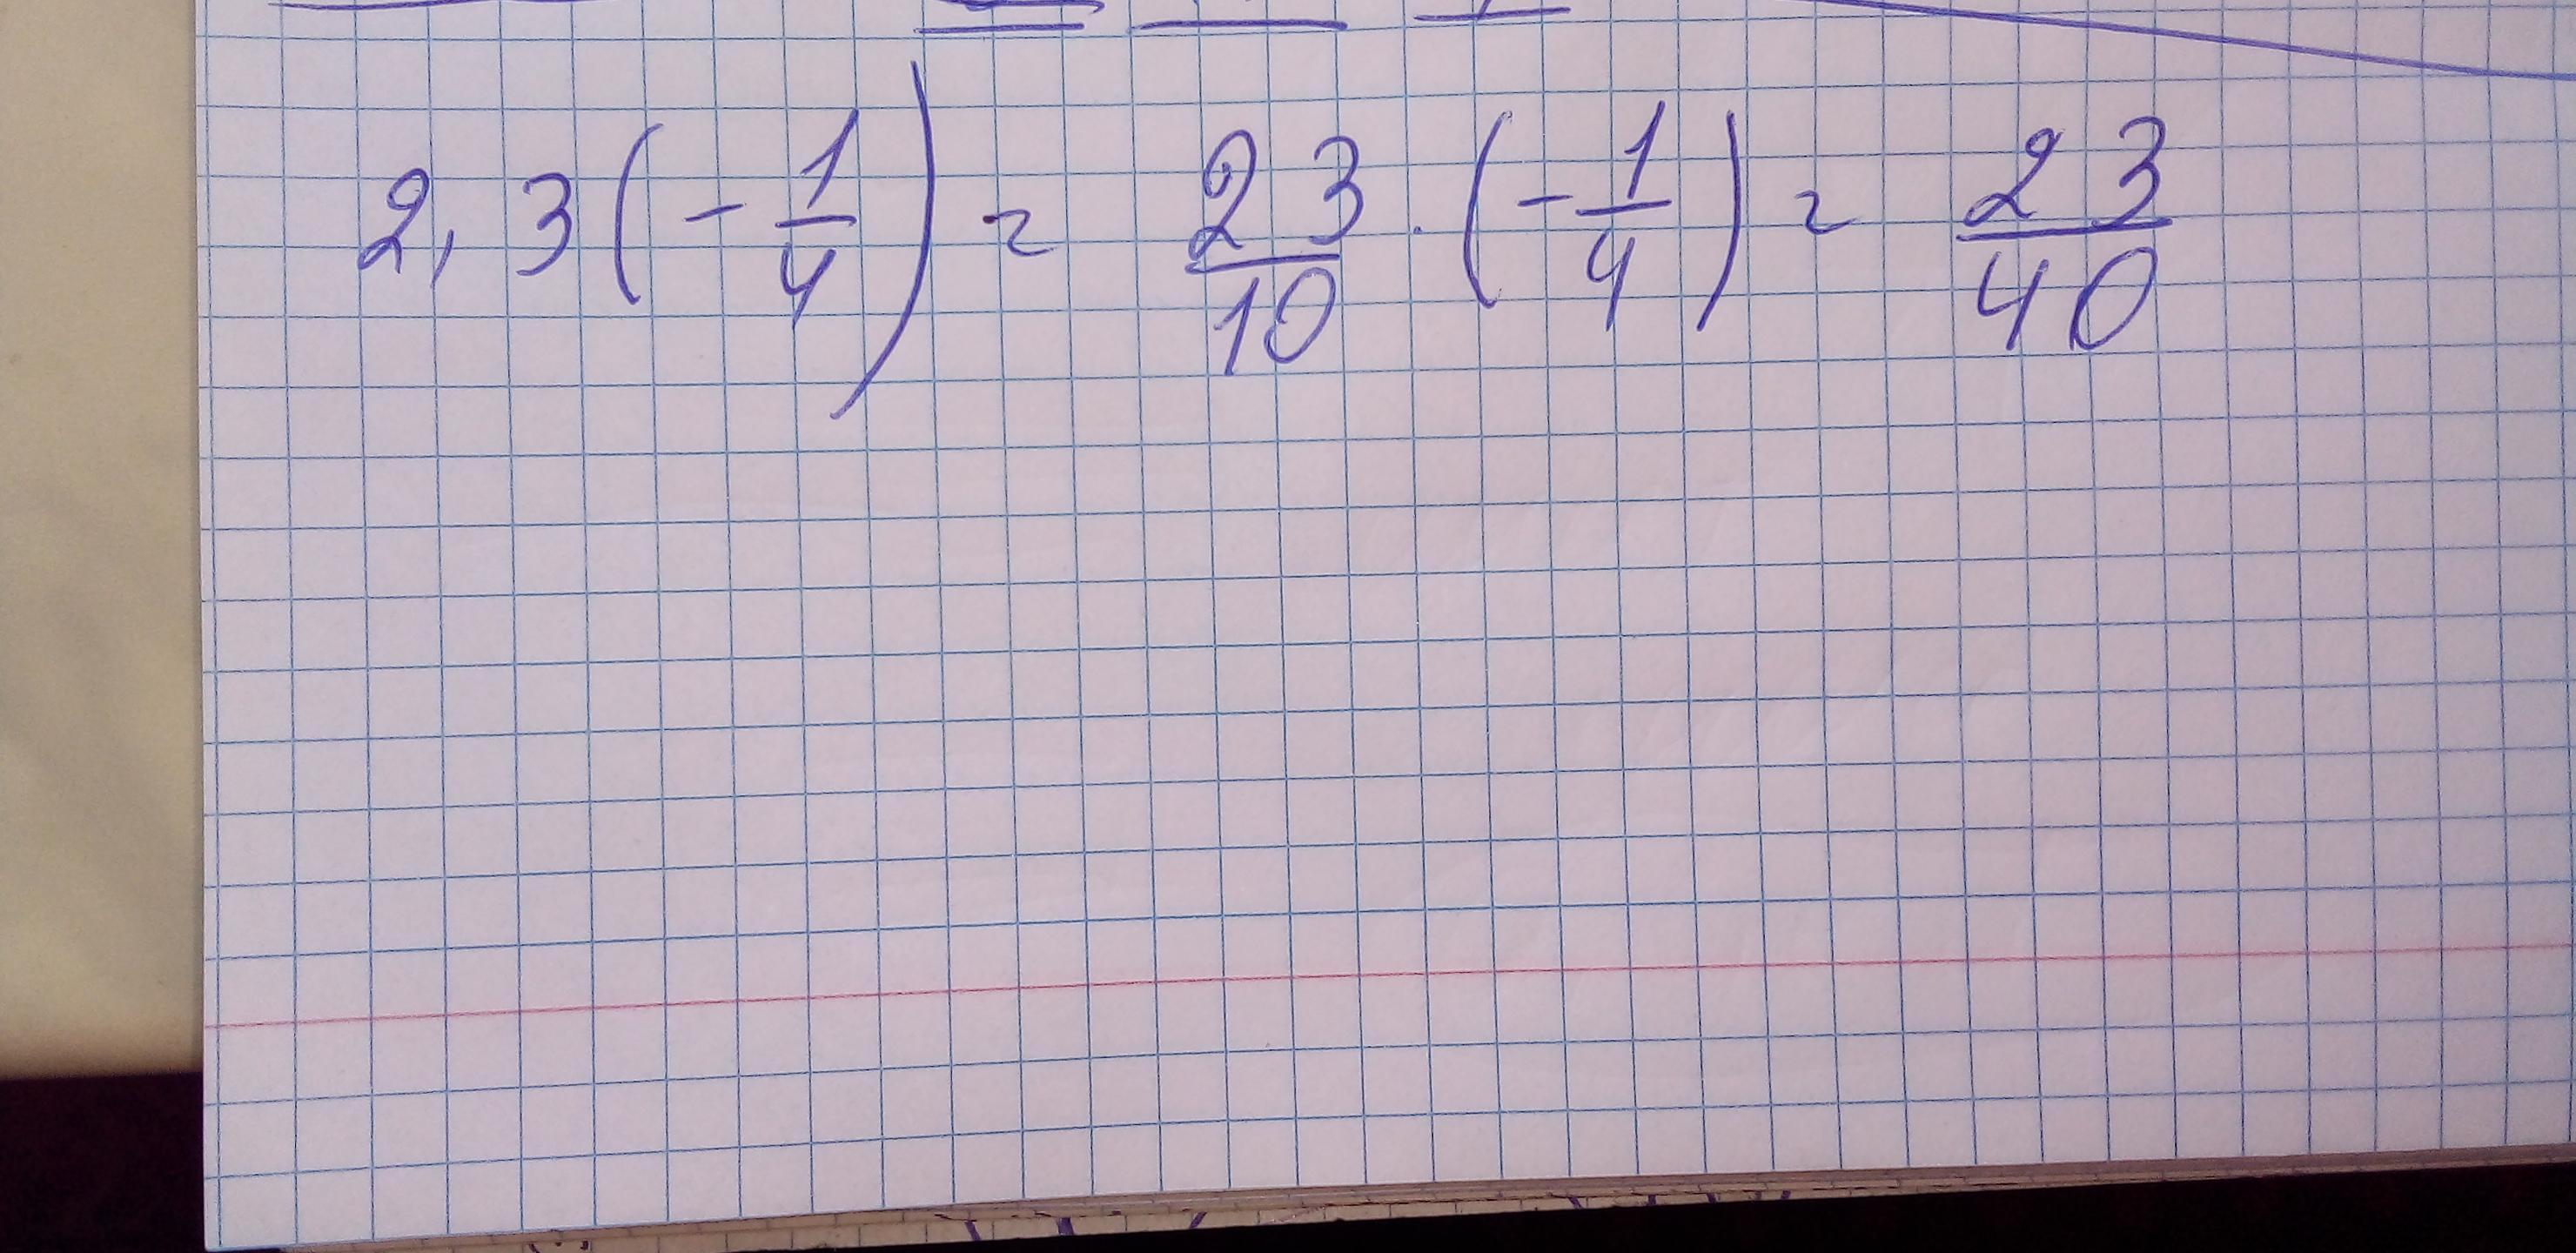 2,3(-1/4) = 23/10 · (-1/4) = 23/40